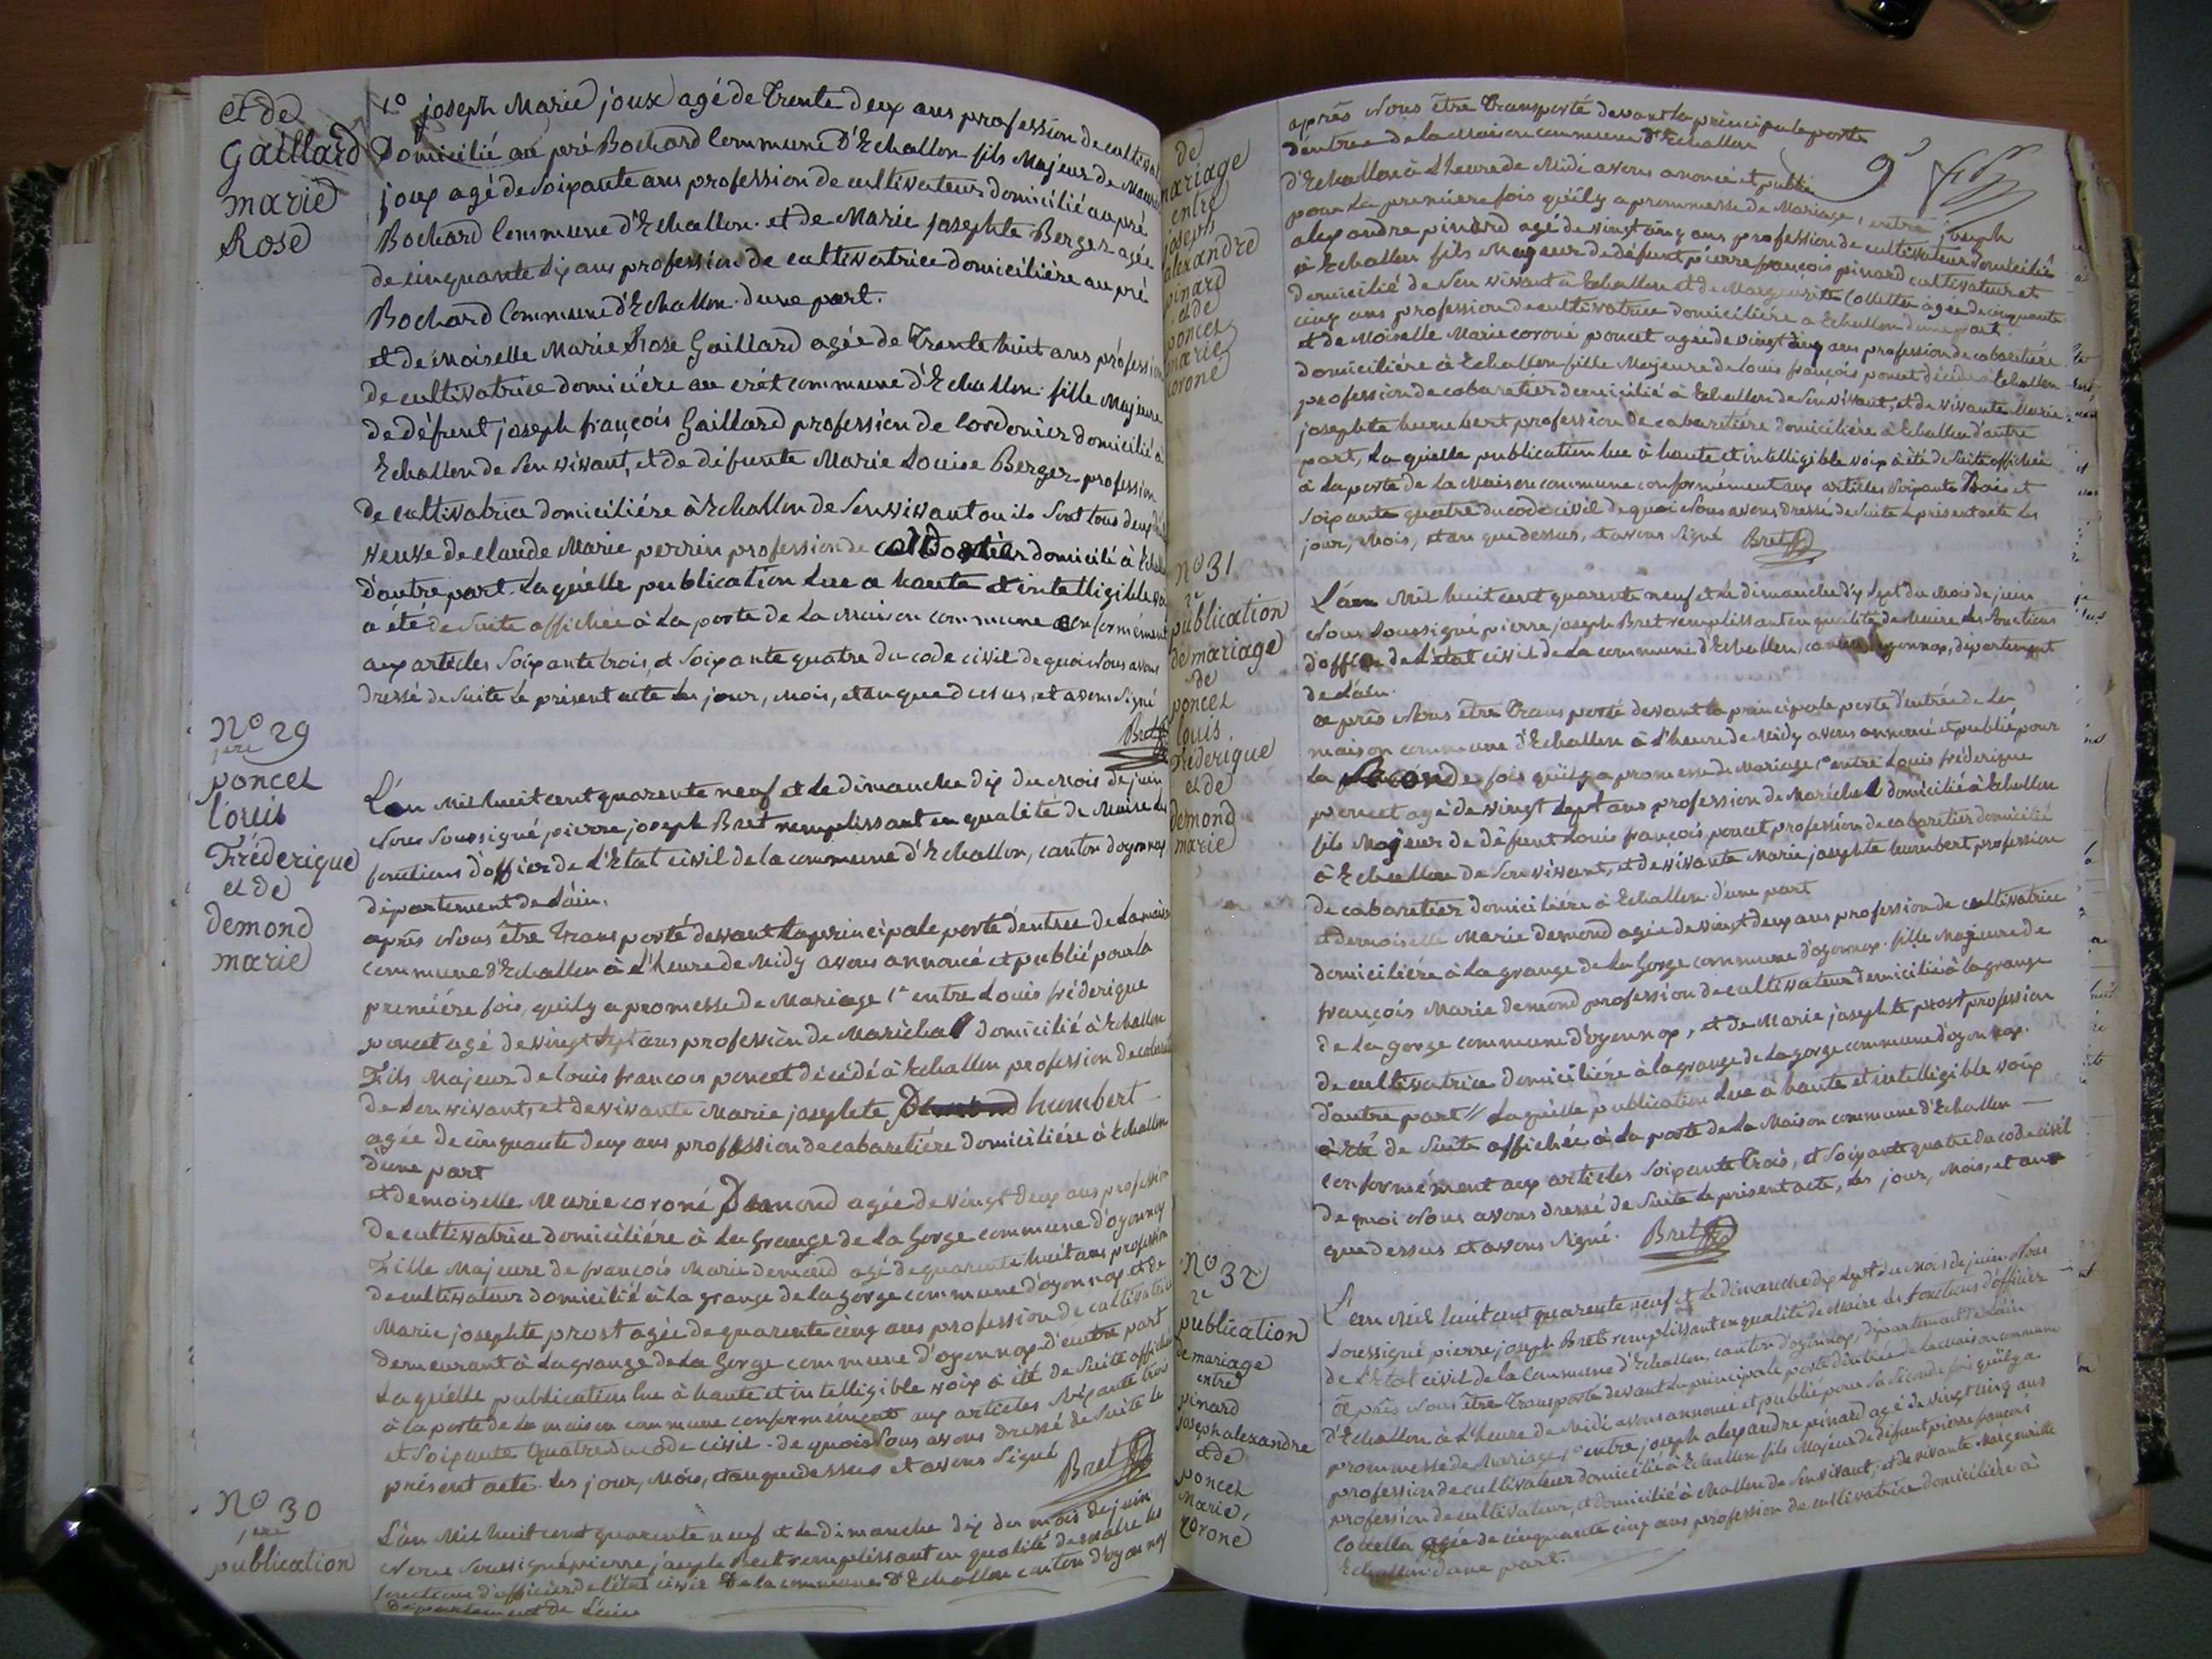 et de
Gaillard
marie
Rose
1º joseph Marie joux agé de Trente deux ans profession de cultivat
Domicilié au pré Bochard Commune D'Echallon fils Majeur de
joux agé de Soixante ans profession de cultivateur domicilié au pré
Bochard Commune d'Echallon. et de Marie josephte Berger agée
de cinquante six ans profession de cultivatrice domicilière au pré
Bochard Commune d'Echallon. d'une part.
et demoiselle Marie Rose Gaillard agée de Trente huit ans profession
de cultivatrice domiciére au crét commune d'Echallon. fille Majeure
de défunt joseph françois Gaillard profession de Cordonier domicilié à
Echallon de Son vivant, et de défunte Marie Louise Berger profession
de cultivatrice domiciliére à Echallon de Son vivant ou ils Sont tous deux
veuve de claude Marie perrin profession de domicilié à
d'autre part. La quélle publication Lue a haute et intelligible
a été de Suite affichée à La porte de La Maison commune conformément
aux articles Soixante trois, et Soixante quatre du code civil de quoi Nous avons
dressé de Suite le présent acte les jour, Mois, et an que dessus, et avons Signé
Bret
Nº 29
1ere
poncet
louis
Fréderique
et de
demond
marie
L'an Mil huit cent quarente neuf et le dimanche dix du Mois de juin
Nous Soussigné pierre joseph Bret remplissant en qualité de Maire les
fonctions d'officier de L'Etat civil de la commune d'Echallon, canton d'oyonnax
département de L'ain.
après Nous être Transporté devant La principale porte d'entrée de La maison
commune d'Echallon à L'heure de Midy avons annoncé et publié pour la
premiére fois, quïl y a promesse de Mariage 1º entre Louis fréderique
poncet agé de vingt Sept ans profession de Maréchal domicilié à Echallon
Fils Majeur de louis francois poncet décédé à Echallon profession de
de Son vivant, et de vivante Marie josephete humbert
agée de cinquante deux ans profession de cabaretiére domiciliére à Echallon
d'une part
et demoiselle Marie coroné Demond agée de vingt deux ans profession
de cultivatrice domiciliére à La Grange de La Gorge commune d'oyonnax
Fille Majeure de françois Marie demond agé de quarente huit ans profession
de cultivateur domicilié à La grange de la Gorge commune d'oyonnax et de
Marie josephte prost agée de quarente cinq ans profession de cultivatrice
demeurant à La grange de La Gorge commune d'oyonnax. d'autre part
La quélle publication lue à haute et intelligible voix à été de Suite affichée
à la porte de La maison commune conformément aux articles Soixante trois
et Soixante Quatre du code civil. de quoi Nous avons dressé de Suite le
présent acte. Les jour, Mois, et an que dessus et avons Signé
Bret
Nº 30
1ere
publication
L'an Mil huit cent quarente neuf et le dimanche dix du mois de juin
Nous Soussigné pierre joseph Bret remplissant en qualité de maire les
fonctions d'officier de l'état civil de la commune d'Echallon canton d'oyonnax
département de L'ain
de
mariage
entre
joseph
alexandre
pinard
et de
poncet
marie
coroné
après Nous être Transporté devant la principale porte
d'entrée de la Maison commune d'Echallon
d'Echallon à L'heure de Midi avons anoncé et publié
pour La première fois qu'ïl y a prommesse de Mariage, entre joseph
alexandre pinard agé de vingt cinq ans profession de cultivateur domicilié
à Echallon fils Majeur de défunt pierre françois pinard cultivateur et
domicilié de Son vivant à Echallon et de Marguerite Colletta agée de cinquante
cinq ans profession de cultivatrice domicilière à Echallon d'une part.
et de Moiselle Marie coroné poncet agée de vingt cinq ans profession de cabaretiére
domicilière à Echallon fille Majeure de louis françois poncet décédé à Echallon
profession de cabaretier domicilié à Echallon de Son vivant, et de vivante Marie
josephte humbert, profession de cabaretiére domicilière à Echallon d'autre
part, La quélle publication lue à haute et intelligible voix à été de Suite affichée
à La porte de La Maison commune conformément aux articles Soixante Trois et
Soixante quatre du code civil de quoi Nous avons Dressé de Suite le présent acte les
jour, Mois, et an que dessus, et avons Signé Bret
Nº 31
2e
publication
de mariage
de
poncet
louis
Fréderique
et de
demond
marie
L'an Mil huit cent quarente neuf et le dimanche dix Sept du Mois de juin
Nous Soussigné pierre joseph Bret remplissant en qualité de Maire les Fonctions
d'officier de L'état civil de La commune d'Echallon, canton d'oyonnax, département
de L'ain.
après Nous être Trans porté devant la principale porte d'entrée de La
maison commune d'Echallon à L'heure de Midy avons annoncé et publié pour
La Seconde fois quïl y a promesse de Mariage 1º entre Louis fréderique
poncet agé de vingt Sept ans profession de Maréchal domicilié à Echallon
fils Majeur de défunt Louis françois poncet profession de cabaretier domicilié
à Echallon de Son vivant, et de vivante Marie josephte humbert profession
de cabaretier domiciliére à Echallon. d'une part
et demoiselle Marie Demond agée de vingt deux ans profession de cultivatrice
domiciliére à La grange de La Gorge commune d'oyonnax. fille Majeure de
françois Marie demond profession de cultivateur domicilié à la grange
de La gorge commune d'oyonnax, et de Marie josephte prost profession
de cultivatrice domiciliére à la grange de La gorge commune d'oyonnax.
d'autre part // La quélle publication Lue à haute et intelligible voix
à été de Suite affichée à La porte de La Maison commune d'Echallon —
conformément aux articles Soixante Trois, et Soixante quatre du code civil
de quoi Nous avons dressé de Suite le présent acte, Les jour, Mois, et an
que dessus et avons Signé. Bret
Nº 32
2e
publication
de mariage
entre
pinard
joseph alexandre
et de
poncet
Marie,
corone
L'an Mil huit cent quarente neuf et le dimanche dix Sept du Mois de juin. Nous
Soussigné pierre joseph Bret remplissant en qualité de Maire les fonctions d'officier
de L'Etat civil de la Commune d'Echallon, canton d'oyonnax, département de L'ain
après Nous être Transporté devant La principale porte d'entrée de la Maison commune
d'Echallon à L'heure de Midi avons annoncé et publié pour La Seconde fois quïl y a
prommesse de Mariage, 1º entre joseph alexandre pinard agé de vingt cinq ans
profession de cultivateur domicilié à Echallon fils Majeur de défunt pierre francois
profession de cultivateur, et domicilié à Echallon de Son vivant, et de vivante Marguerite
Colletta agée de cinquante cinq ans profession de cultivatrice domiciliére à
Echallon d'une part.